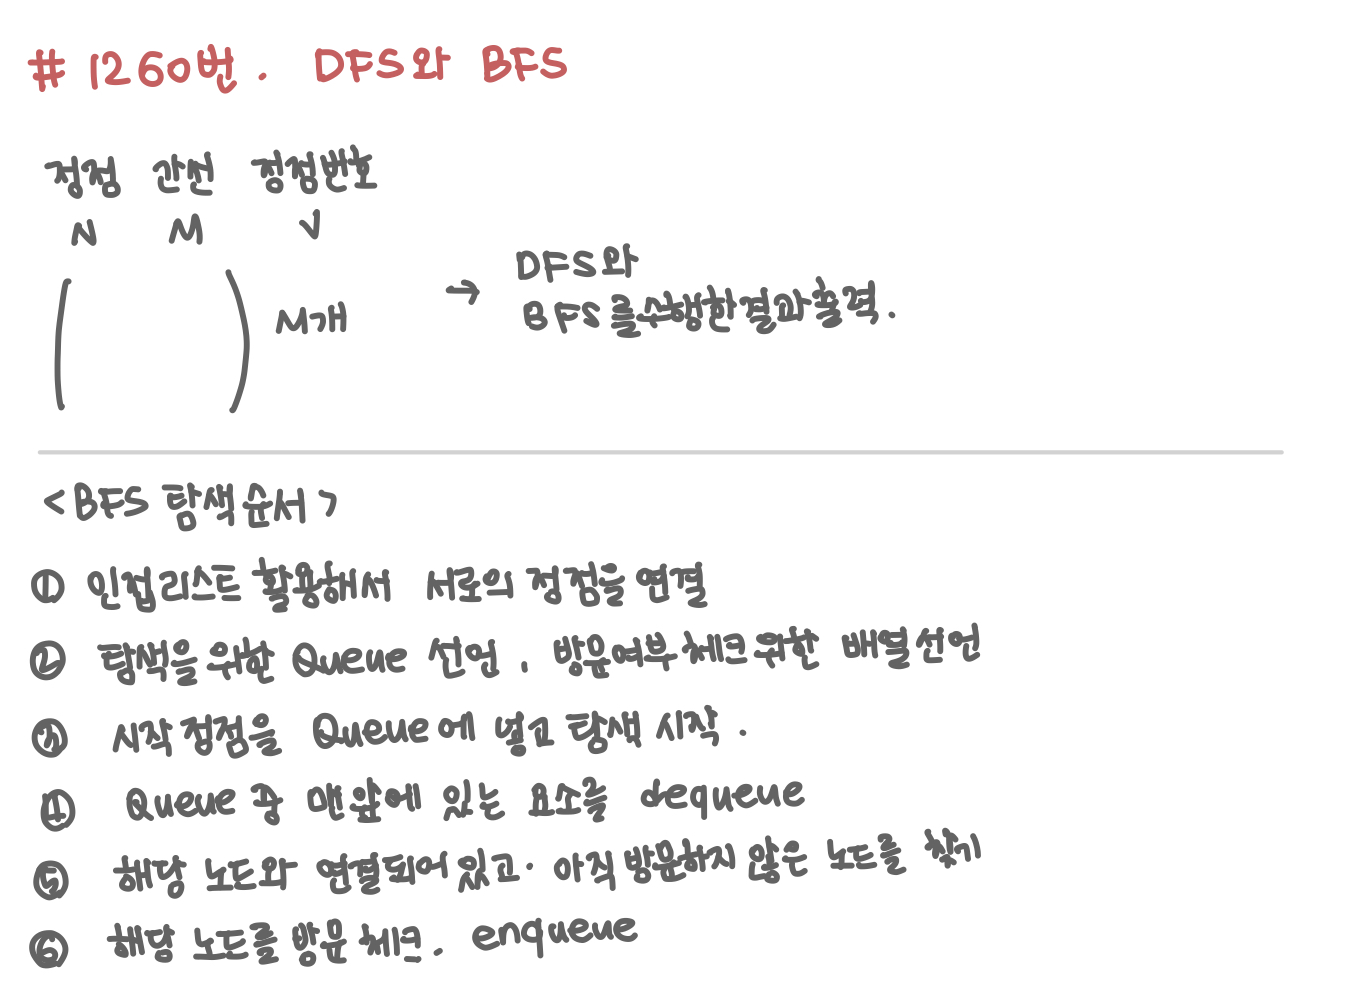 # 1260번. DFS와 BFS
정점 간선 정점번호
N M V
M개
→ DFS와
BFS를수행한결과출력.
<BFS 탐색순서>
① 인접리스트 활용해서 서로의 정점을 연결
② 탐색을위한 Queue 선언, 방문여부체크위한 배열선언
③ 시작정점을 Queue에 넣고 탐색 시작.
④ Queue 중 맨앞에 있는 요소를 dequeue
⑤ 해당 노드와 연결되어있고· 아직방문하지 않은 노드를 찾기
⑥ 해당 노드를 방문체크. enqueue